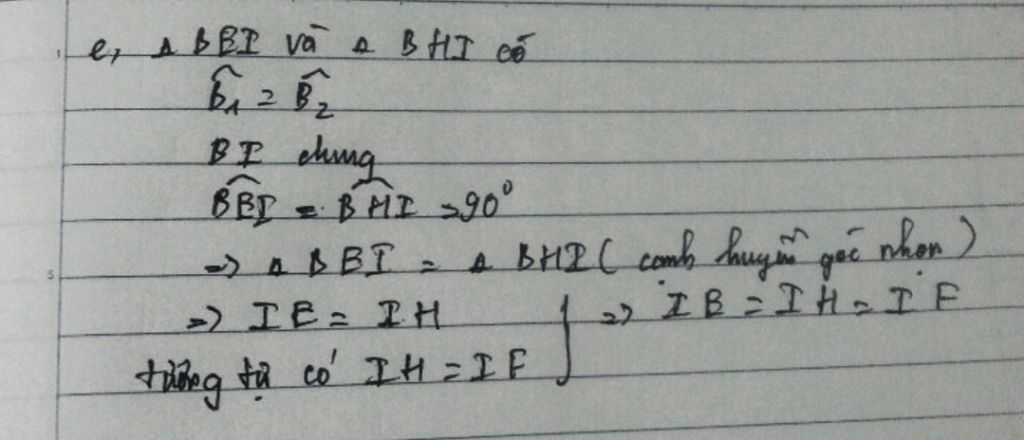 e, Δ BEI và Δ BHI có
B̂₁ = B̂₂
BI chung
BEI = BHI = 90⁰
=> Δ BEI = Δ BHI ( cạnh huyền góc nhọn )
=> IE = IH
tương tự có IH = IF } => IE = IH = IF